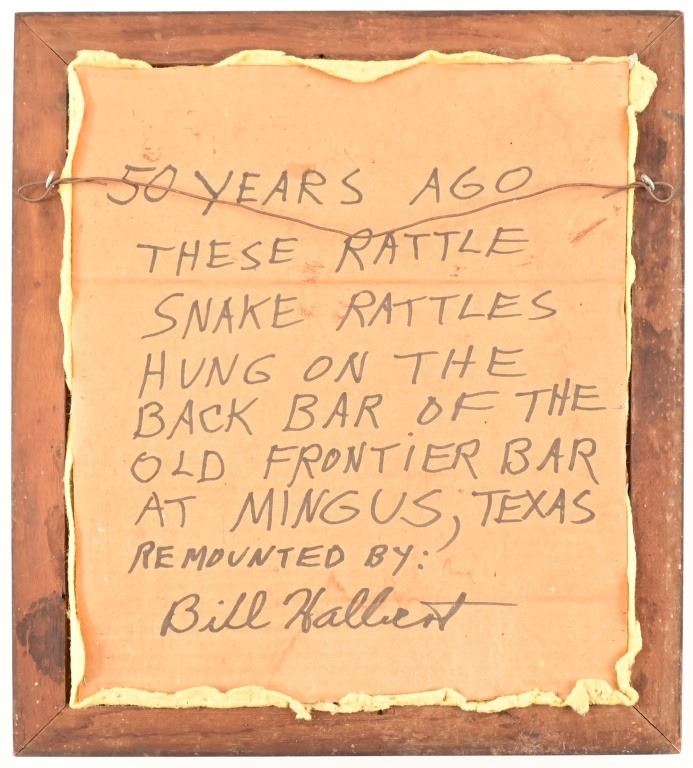 50 YEARS AGO
THESE RATTLE
SNAKE RATTLES
HUNG ON THE
BACK BAR OF THE
OLD FRONTIER BAR
AT MINGUS, TEXAS
REMOUNTED BY:
Bill Halbert